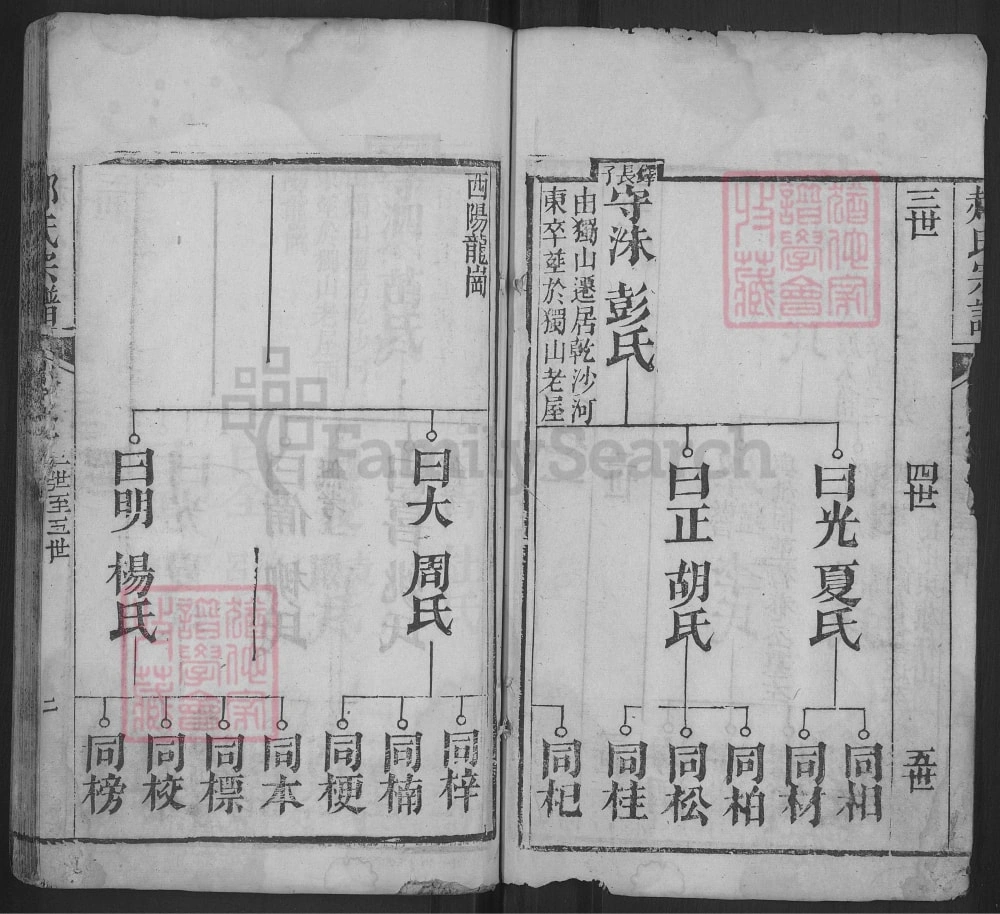 三世
四世
五世
長子
守洙 彭氏
由獨山遷居乾沙河
東卒塟於獨山老屋
曰光 夏氏
曰正 胡氏
同相
同材
同柏
同松
同桂
同杞
酉陽龍崗
曰大 周氏
曰明 楊氏
同梓
同楠
同梗
同本
同標
同校
同榜
氏宗譜
二世至五世
二
FamilySearch